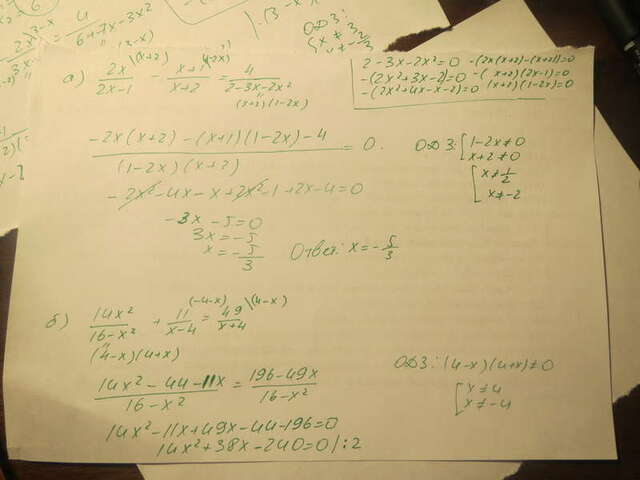 4
6+7x-3x²
ОДЗ:
а) 2x/(2x-1) \(x+2) - (x+1)/(x+2) \(1-2x) = 4/(2-3x-2x²)
(x+2)(1-2x)
2-3x-2x²=0 -(2x(x+2)-(x+2))=0
-(2x²+3x-2)=0 -(x+2)(2x-1)=0
-(2x²+4x-x-2)=0 (x+2)(1-2x)=0
(-2x(x+2)-(x+1)(1-2x)-4)/((1-2x)(x+2)) = 0.
ОДЗ: [1-2x≠0
x+2≠0
[x≠1/2
x≠-2
-2x²-4x-x+2x²-1+2x-4=0
-3x-5=0
3x=-5
x=-5/3
Ответ: x=-5/3
б) 14x²/(16-x²) + 11/(x-4) \(-4-x) = 49/(x+4) \(4-x)
(4-x)(4+x)
ОДЗ: (4-x)(4+x)≠0
[x≠4
x≠-4
(14x²-44-11x)/(16-x²) = (196-49x)/(16-x²)
14x²-11x+49x-44-196=0
14x²+38x-240=0 /:2